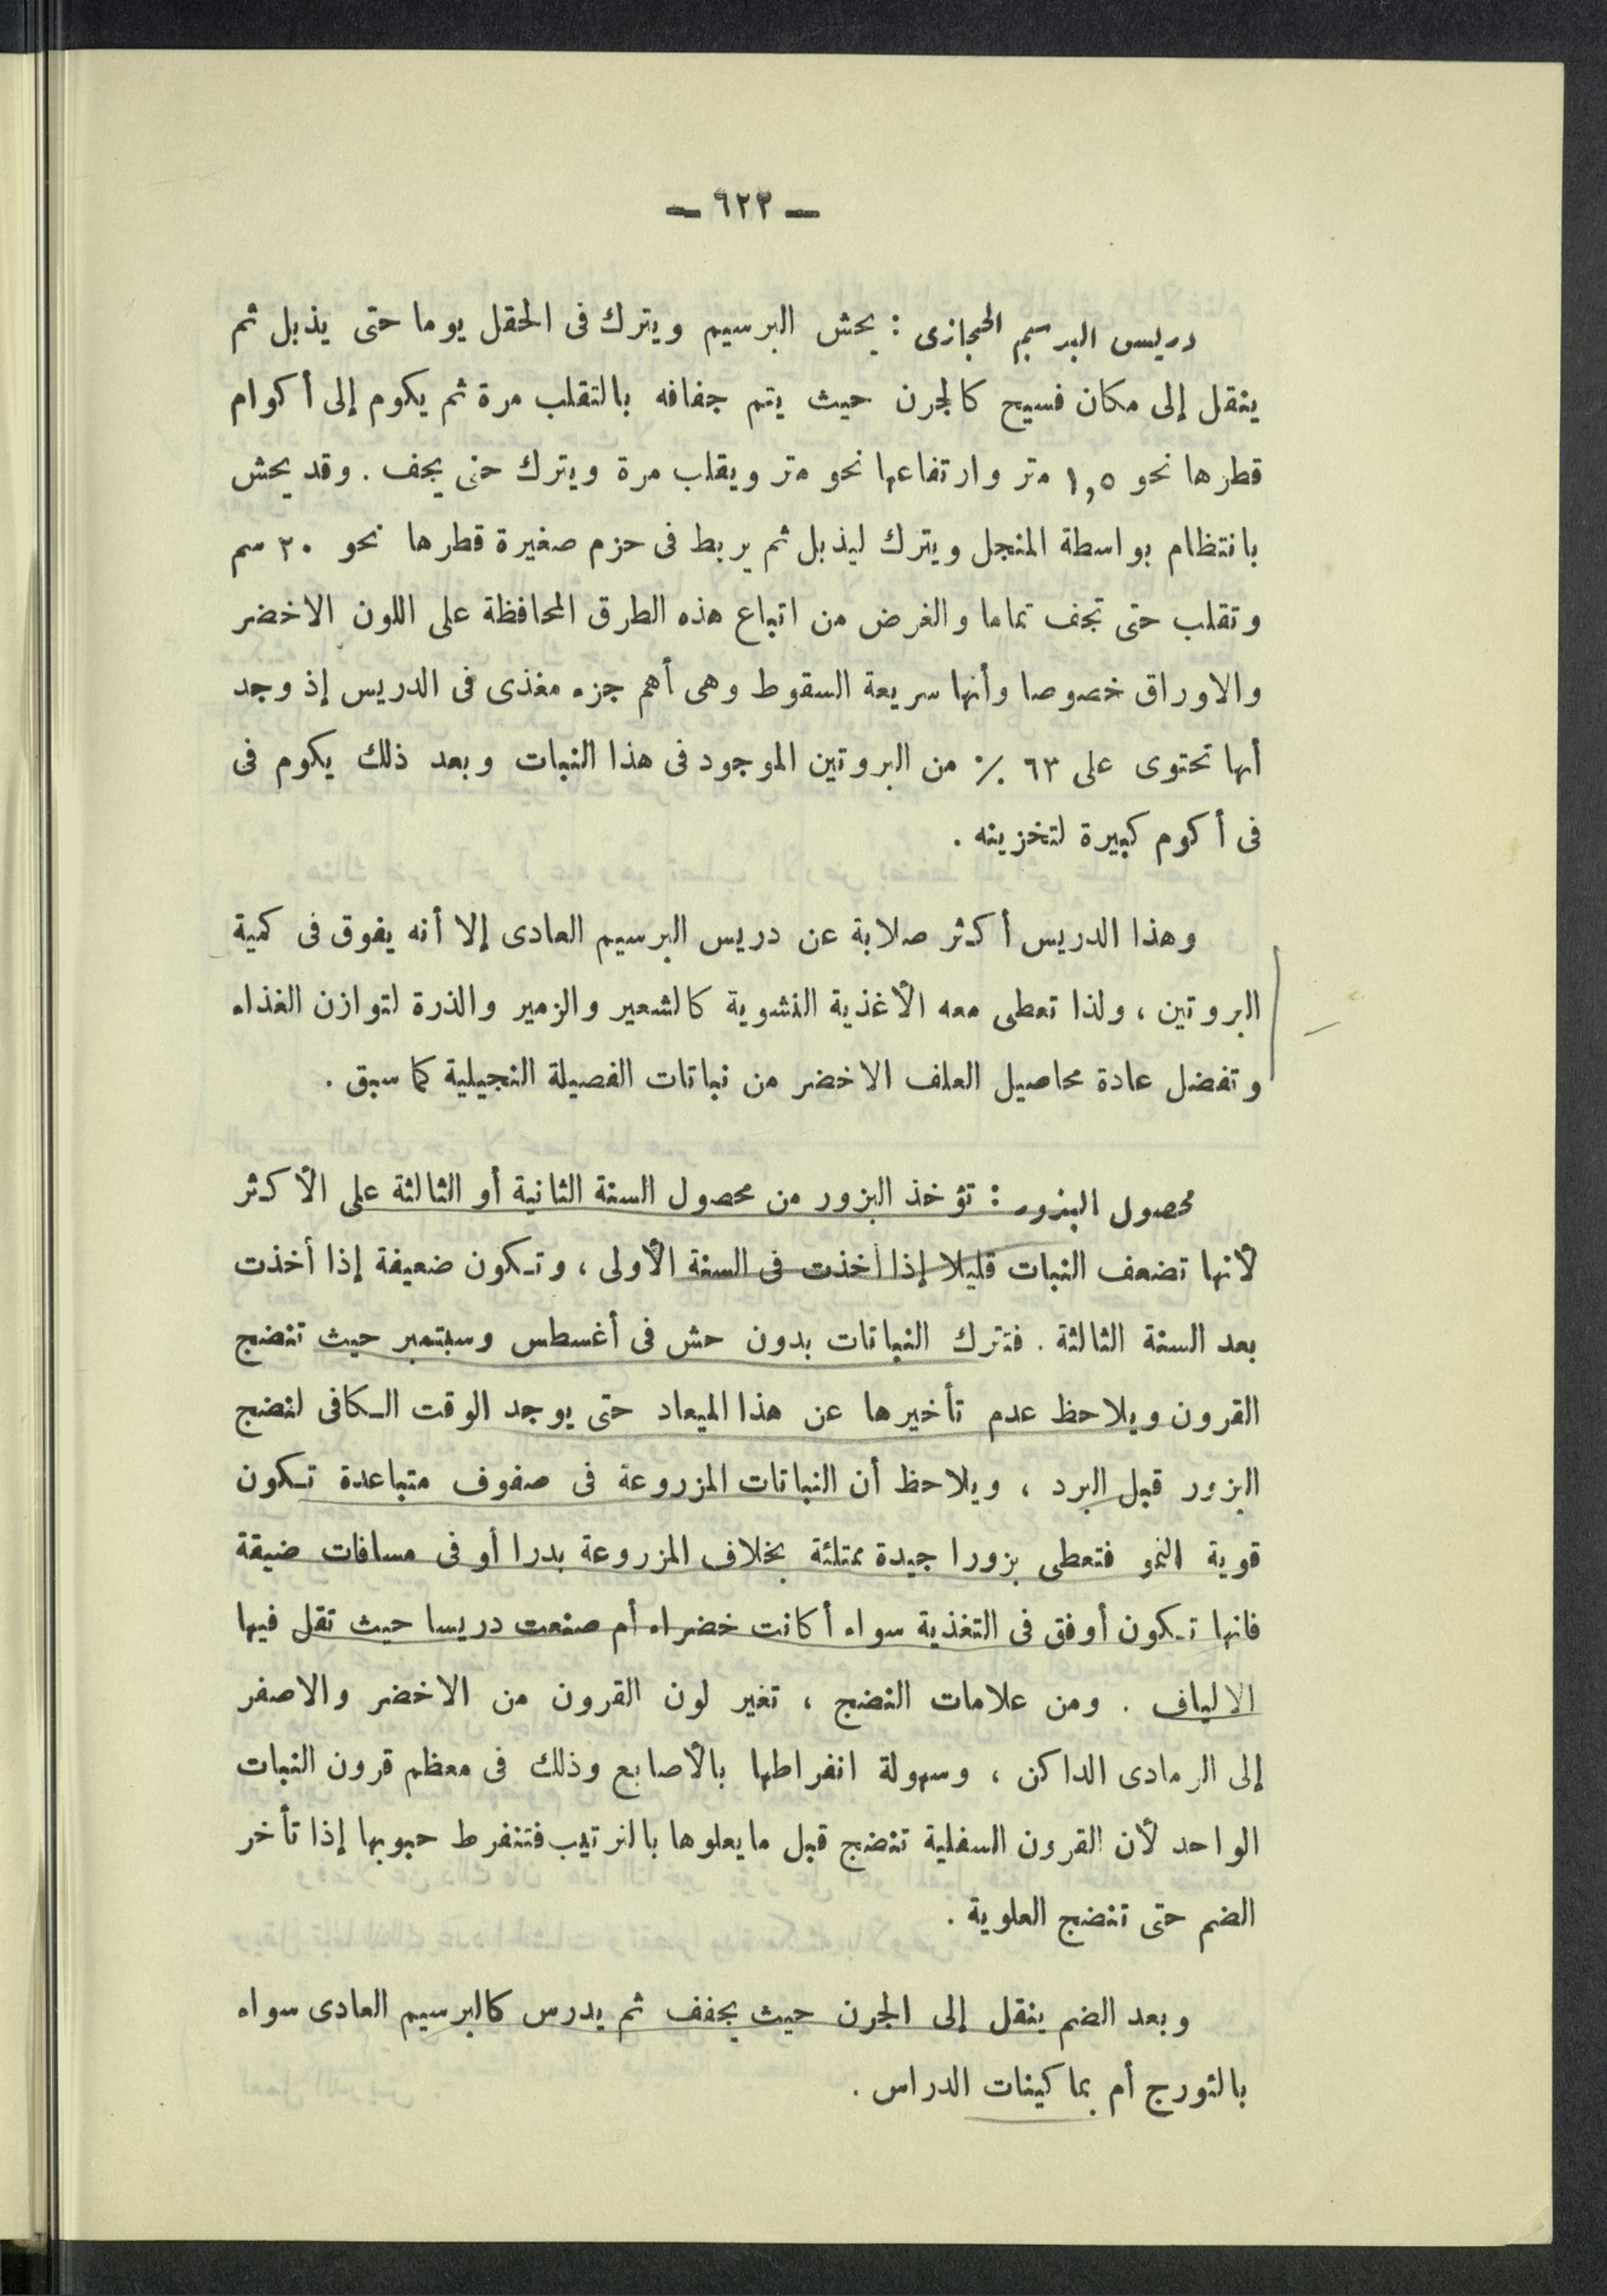 — ٦٢٢ —
دريس البرسيم الحجازى : يحش البرسيم ويترك فى الحقل يوما حتى يذبل ثم
ينقل إلى مكان فسيح كالجرن حيث يتم جفافه بالتقلب مرة ثم يكوم إلى أكوام
قطرها نحو ١,٥ متر وارتفاعها نحو متر ويقلب مرة ويترك حتى يجف . وقد يحش
بانتظام بواسطة المنجل ويترك ليذبل ثم يربط فى حزم صغيرة قطرها نحو ٢٠ سم
وتقلب حتى تجف تماما والغرض من اتباع هذه الطرق المحافظة على اللون الاخضر
والاوراق خصوصا وأنها سريعة السقوط وهى أهم جزء مغذى فى الدريس إذ وجد
أنها تحتوى على ٦٣ ٪ من البروتين الموجود فى هذا النبات وبعد ذلك يكوم فى
فى أكوم كبيرة لتخزينه .
وهذا الدريس أكثر صلابة عن دريس البرسيم العادى إلا أنه يفوق فى كمية
البروتين ، ولذا تعطى معه الأغذية النشوية كالشعير والزمير والذرة لتوازن الغذاء
وتفضل عادة محاصيل العلف الاخضر من نباتات الفصيلة النجيلية كما سبق .
محصول البذور : تؤخذ البزور من محصول السنة الثانية أو الثالثة على الأكثر
لأنها تضعف النبات قليلا إذا أخذت فى السنة الأولى ، وتكون ضعيفة إذا أخذت
بعد السنة الثالثة . فتترك النباتات بدون حش فى أغسطس وسبتمبر حيث تنضج
القرون ويلاحظ عدم تأخيرها عن هذا الميعاد حتى يوجد الوقت الكافى لنضج
البزور قبل البرد ، ويلاحظ أن النباتات المزروعة فى صفوف متباعدة تكون
قوية النمو فتعطى بزورا جيدة ممتلئة بخلاف المزروعة بدرا أو فى مسافات ضيقة
فانها تكون أوفق فى التغذية سواء أكانت خضراء أم صنعت دريسا حيث تقل فيها
الالياف . ومن علامات النضج ، تغير لون القرون من الاخضر والاصفر
إلى الرمادى الداكن ، وسهولة انفراطها بالأصابع وذلك فى معظم قرون النبات
الواحد لأن القرون السفلية تنضج قبل مايعلوها بالترتيب فتنفرط حبوبها إذا تأخر
الضم حتى تنضج العلوية .
وبعد الضم ينقل إلى الجرن حيث يجفف ثم يدرس كالبرسيم العادى سواء
بالنورج أم بماكينات الدراس .